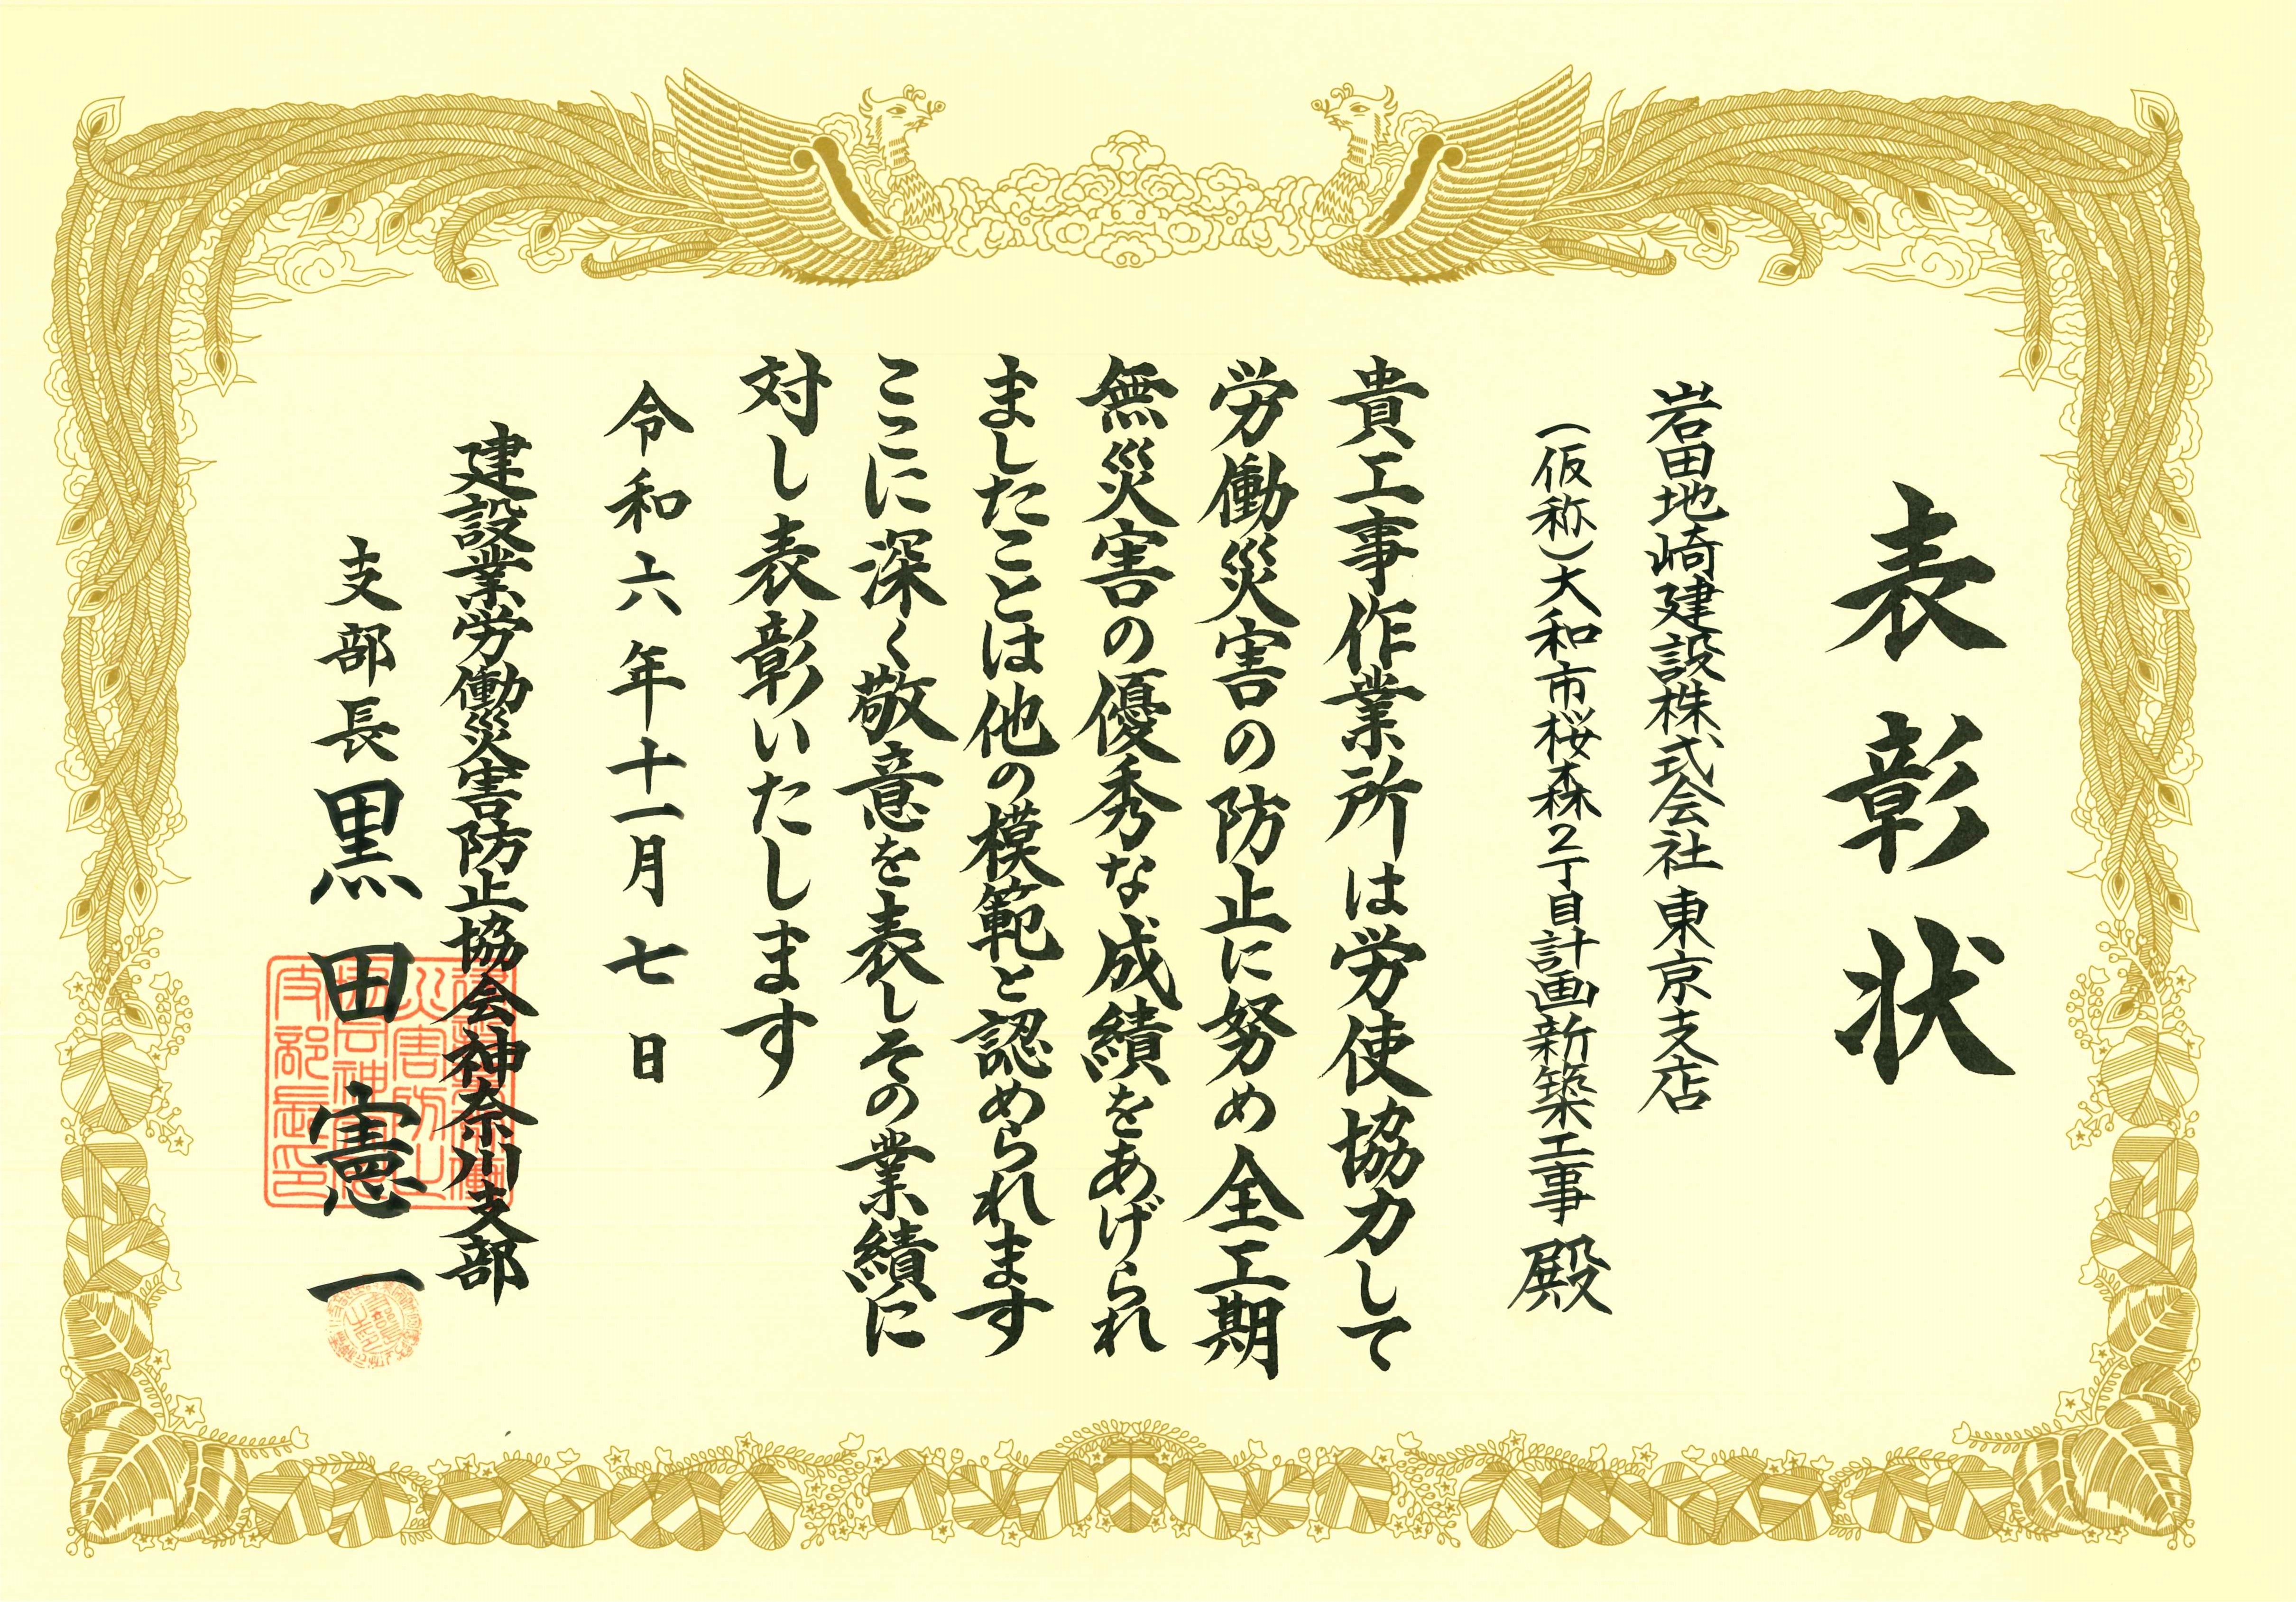 表彰状
岩田地崎建設株式会社 東京支店
（仮称）大和市桜森２丁目計画新築工事 殿
貴工事作業所は労使協力して
労働災害の防止に努め全工期
無災害の優秀な成績をあげられ
ましたことは他の模範と認められます
ここに深く敬意を表しその業績に
対し表彰いたします
令和六年十一月七日
建設業労働災害防止協会神奈川支部
支部長 黒田憲一